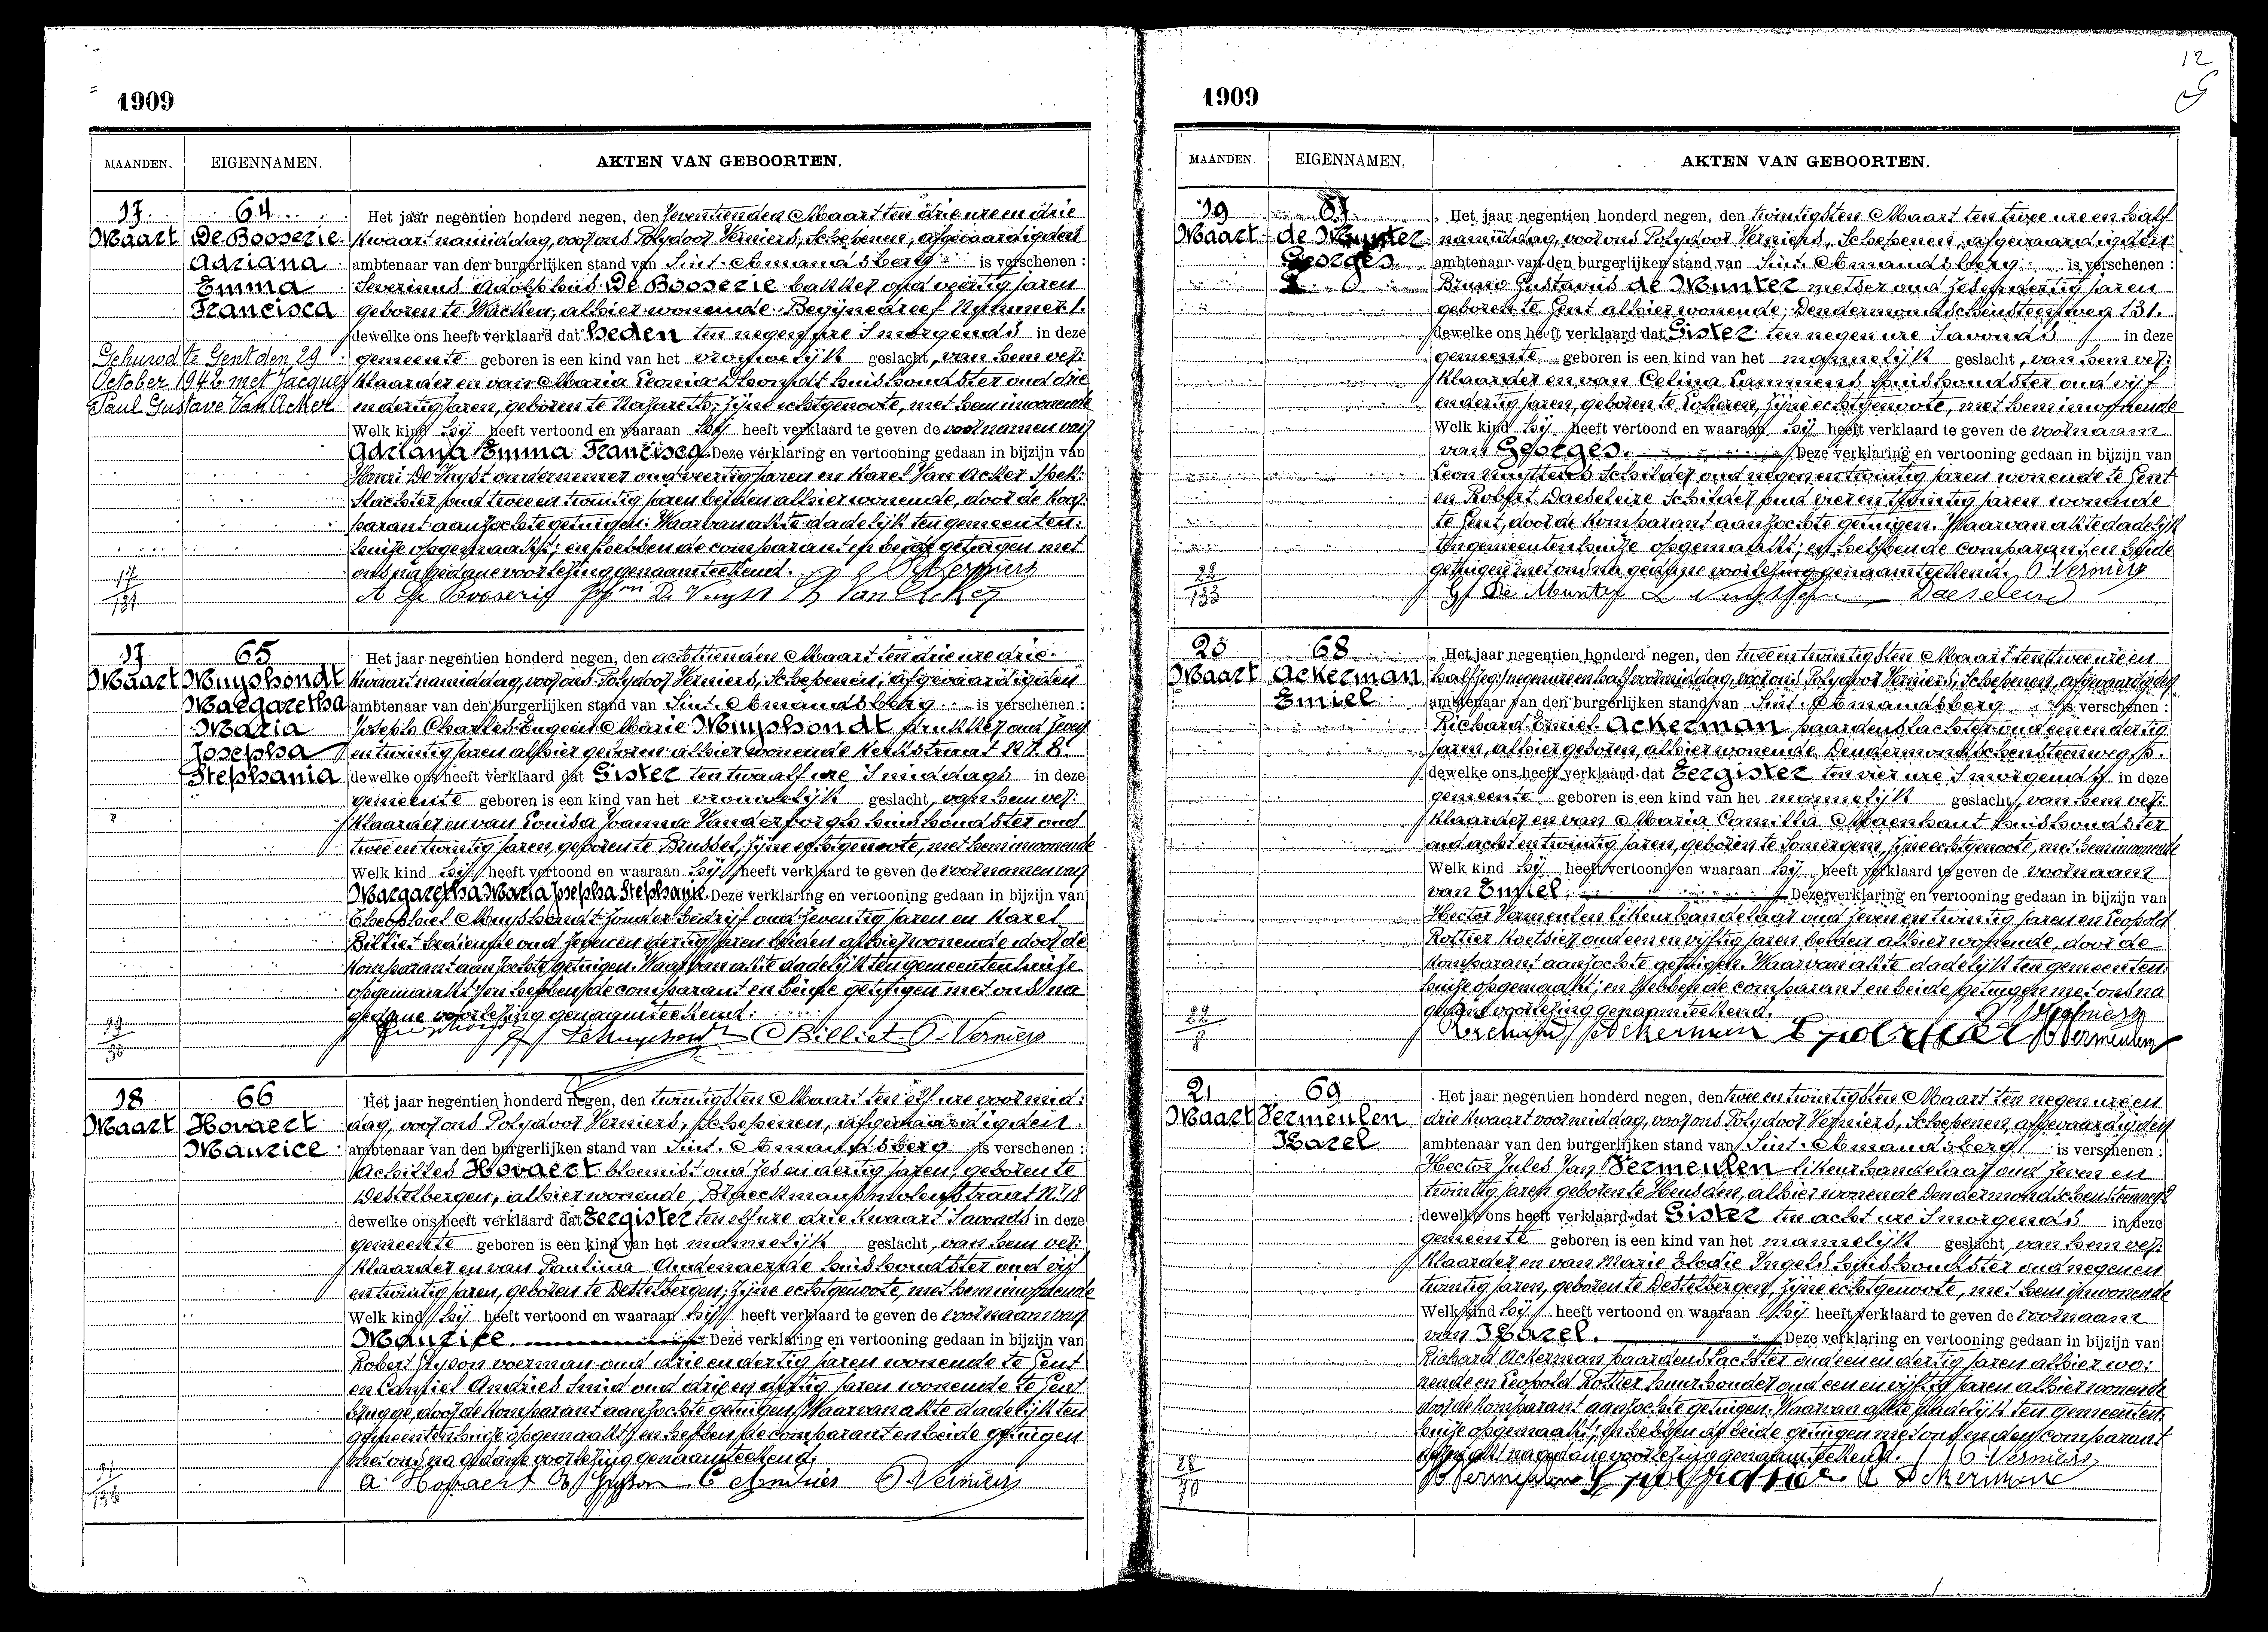 12
1909
MAANDEN. EIGENNAMEN. AKTEN VAN GEBOORTEN.
17 Maart
64
De Booserie
Adriana
Emma
Francisca
Gehuwd te Gent den 29
October 1942 met Jacques
Paul Gustave Van Acker
Het jaar negentien honderd negen, den zeventienden Maart ten drie ure en drie
kwaart namiddag, voor ons Polydoor Verniers, Schepenen, afgevaardigden
ambtenaar van den burgerlijken stand van Sint-Amandsberg is verschenen:
Severinus Adolphus De Booserie bakker oud veertig jaren
geboren te Wacken, alhier wonende Begijnedreef Nummer 1.
dewelke ons heeft verklaard dat heden ten negen ure 's morgends in deze
gemeente geboren is een kind van het vrouwelijk geslacht, van hem ver-
klaarder en van Maria Leonia D'hondt huishoudster oud drie
en dertig jaren, geboren te Nazareth, zijne echtgenoote, met hem inwonende
Welk kind hij heeft vertoond en waaraan hij heeft verklaard te geven de voornamen van
Adriana Emma Francisca. Deze verklaring en vertooning gedaan in bijzijn van
Henri De Vuyst ondernemer oud veertig jaren en Karel Van Acker spek-
slachter oud twee en twintig jaren beiden alhier wonende, door de kom-
parant aanzochte getuigen. Waarvan akte dadelijk ten gemeenten-
huize opgemaakt; en hebben de comparant en beide getuigen met
ons na gedane voorlezing genaamteekend. P. Verniers
A De Booserie De Vuyst Van Acker
17/131
17 Maart
65
Muyshondt
Margaretha
Maria
Josepha
Stephania
Het jaar negentien honderd negen, den achttienden Maart ten drie ure drie
kwaart namiddag, voor ons Polydoor Verniers, Schepenen, afgevaardigden
ambtenaar van den burgerlijken stand van Sint-Amandsberg is verschenen:
Joseph Charles Eugene Marie Muyshondt drukker oud zeven
en twintig jaren alhier geboren alhier wonende Kerkstraat N.r 8.
dewelke ons heeft verklaard dat Gister ten twaalf ure 's middags in deze
gemeente geboren is een kind van het vrouwelijk geslacht, van hem ver-
klaarder en van Louisa Joanna Vanderborght huishoudster oud
twee en twintig jaren, geboren te Brussel, zijne echtgenoote, met hem inwonende
Welk kind hij heeft vertoond en waaraan hij heeft verklaard te geven de voornamen van
Margaretha Maria Josepha Stephania. Deze verklaring en vertooning gedaan in bijzijn van
Theophiel Muyshondt zonder bedrijf oud zeventig jaren en Karel
Billiet bediende oud zeven en dertig jaren beiden alhier wonende door de
komparant aanzochte getuigen. Waarvan akte dadelijk ten gemeentenhuize
opgemaakt; en hebben de comparant en beide getuigen met ons na
gedane voorlezing genaamteekend.
Muyshondt C Billiet P. Verniers
18 Maart
66
Hovaert
Maurice
Het jaar negentien honderd negen, den twintigsten Maart ten elf ure voormid-
dag, voor ons Polydoor Verniers, Schepenen, afgevaardigden
ambtenaar van den burgerlijken stand van Sint-Amandsberg is verschenen:
Achilles Hovaert bloemist oud zes en dertig jaren, geboren te
Destelbergen, alhier wonende, Braeckmansmolenstraat N.r 18
dewelke ons heeft verklaard dat Eergister ten elf ure drie kwaart 's avonds in deze
gemeente geboren is een kind van het mannelijk geslacht, van hem ver-
klaarder en van Paulinia Audenaerde huishoudster oud vijf
en twintig jaren, geboren te Destelbergen, zijne echtgenoote, met hem inwonende
Welk kind hij heeft vertoond en waaraan hij heeft verklaard te geven de voornaam van
Maurice. Deze verklaring en vertooning gedaan in bijzijn van
Robert voerman oud drie en dertig jaren wonende te Gent
en Camiel Andries Smid oud drie en dertig jaren wonende te Gent
brugge, door de komparant aanzochte getuigen. Waarvan akte dadelijk ten
gemeentenhuize opgemaakt; en hebben de comparant en beide getuigen
met ons na gedane voorlezing genaamteekend.
A. Hovaert C Andries P. Verniers
1909
MAANDEN. EIGENNAMEN. AKTEN VAN GEBOORTEN.
19 Maart
67
de Munter
Georges
Het jaar negentien honderd negen, den twintigsten Maart ten twee ure en half
namiddag, voor ons Polydoor Verniers, Schepenen, afgevaardigden
ambtenaar van den burgerlijken stand van Sint-Amandsberg is verschenen:
Bruno Gustavus de Munter metser oud zes en dertig jaren
geboren te Gent alhier wonende, Dendermondschensteenweg 131.
dewelke ons heeft verklaard dat Gister ten negen ure 's avonds in deze
gemeente geboren is een kind van het mannelijk geslacht, van hem ver-
klaarder en van Celina Lammens huishoudster oud vijf
en dertig jaren, geboren te Lokeren, zijne echtgenoote, met hem inwonende
Welk kind hij heeft vertoond en waaraan hij heeft verklaard te geven de voornaam
van Georges. Deze verklaring en vertooning gedaan in bijzijn van
Leon Schilder oud negen en twintig jaren wonende te Gent
en Robert Daeseleire Schilder oud vier en twintig jaren wonende
te Gent, door de komparant aanzochte getuigen. Waarvan akte dadelijk
ten gemeentenhuize opgemaakt; en hebben de comparant en beide
getuigen met ons na gedane voorlezing genaamteekend. P. Verniers
De Munter Daeseleire
22/133
20 Maart
68
Ackerman
Emiel
Het jaar negentien honderd negen, den twee en twintigsten Maart ten twee ure en
half zeg: negen ure en half voormiddag, voor ons Polydoor Verniers, Schepenen, afgevaardigden
ambtenaar van den burgerlijken stand van Sint-Amandsberg is verschenen:
Richard Emiel Ackerman paardenslachter oud een en dertig
jaren, alhier geboren, alhier wonende Dendermondschensteenweg
dewelke ons heeft verklaard dat Eergister ten vier ure 's morgends in deze
gemeente geboren is een kind van het mannelijk geslacht, van hem ver-
klaarder en van Maria Camilla Maenhaut huishoudster
oud acht en twintig jaren, geboren te Somergem, zijne echtgenoote, met hem inwonende
Welk kind hij heeft vertoond en waaraan hij heeft verklaard te geven de voornaam
van Emiel. Deze verklaring en vertooning gedaan in bijzijn van
Hector Vermeulen likeurhandelaar oud zeven en twintig jaren en Leopold
Rottier Koetsier oud een en vijftig jaren beiden alhier wonende, door de
komparant aanzochte getuigen. Waarvan akte dadelijk ten gemeenten-
huize opgemaakt; en hebben de comparant en beide getuigen met ons na
gedane voorlezing genaamteekend. P. Verniers
Richard Ackerman Rottier Vermeulen
21 Maart
69
Vermeulen
Karel
Het jaar negentien honderd negen, den twee en twintigsten Maart ten negen ure en
drie kwaart voormiddag, voor ons Polydoor Verniers, Schepenen, afgevaardigden
ambtenaar van den burgerlijken stand van Sint-Amandsberg is verschenen:
Hector Jules Jan Vermeulen likeurhandelaar oud zeven en
twintig jaren geboren te Heusden, alhier wonende Dendermondschensteenweg
dewelke ons heeft verklaard dat Gister ten acht ure 's morgends in deze
gemeente geboren is een kind van het mannelijk geslacht, van hem ver-
klaarder en van Marie Elodie Ingels huishoudster oud negen en
twintig jaren, geboren te Destelbergen, zijne echtgenoote, met hem inwonende
Welk kind hij heeft vertoond en waaraan hij heeft verklaard te geven de voornaam
van Karel. Deze verklaring en vertooning gedaan in bijzijn van
Richard Ackerman paardenslachter oud een en dertig jaren alhier wo-
nende en Leopold Rottier huurhouder oud een en vijftig jaren alhier wonende
door de komparant aanzochte getuigen. Waarvan akte dadelijk ten gemeenten-
huize opgemaakt; en hebben de beide getuigen met ons en den comparant
na gedane voorlezing genaamteekend. P. Verniers
Vermeulen Rottier R Ackerman